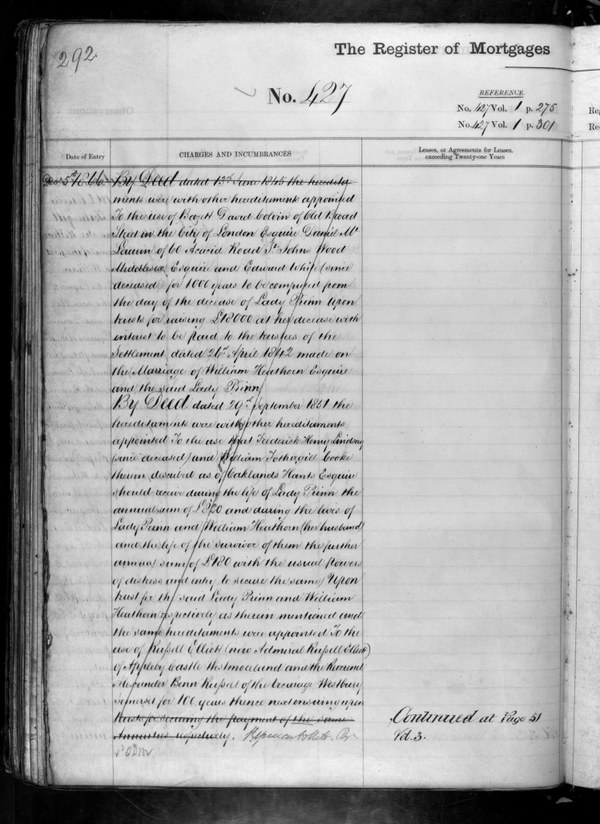 292
The Register of Mortgages
No. 427
REFERENCE.
No. 427 Vol. 1 p. 275
No. 427 Vol. 1 p. 301
Date of Entry
CHARGES AND INCUMBRANCES
Leases, or Agreements for Leases,
exceeding Twenty-one Years
By Deed dated 13th June 1845 the heredita
ments were with other hereditaments appointed
To the use of Bazett David Colvin of Old Broad
Street in the City of London Esquire Daniel Mc
of 60 Acacia Road St John Wood
Middlesex Esquire and Edward (since
deceased) for 1000 years to be computed from
the day of the decease of Lady Prinn Upon
trusts for raising £18000 at her decease with
interest to be paid to the trustees of the
Settlement dated 26th April 1842 made on
the Marriage of William Heathorn Esquire
and the said Lady Prinn
By Deed dated 29th September 1851 the
hereditaments were with other hereditaments
appointed To the use that Frederick Henry Lindsay
(since deceased) and William Fothergill Cooke
therein described as of Oaklands Hants Esquire
should receive during the life of Lady Prinn the
annual sum of and during the lives of
Lady Prinn and William Heathorn (her husband)
and the life of the survivor of them the further
annual sum of £120 with the usual powers
of distress and entry to secure the same Upon
trust for the said Lady Prinn and William
Heathorn respectively as therein mentioned and
the same hereditaments were appointed To the
use of Russell Elliott (now Admiral Russell Elliott)
of Appleby Castle Westmoreland and the
Alexander Benn Russell of the Westbury
Somerset for 100 years thence next ensuing upon
trusts for securing the payment of the same
Annuities respectively.
Continued at Page 51
Vol 3.